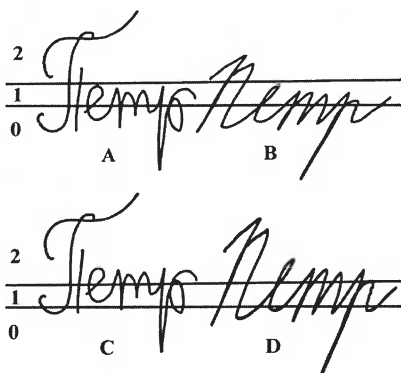 2
1 Петр Петр
0
A B
2
1 Петр Петр
0
C D